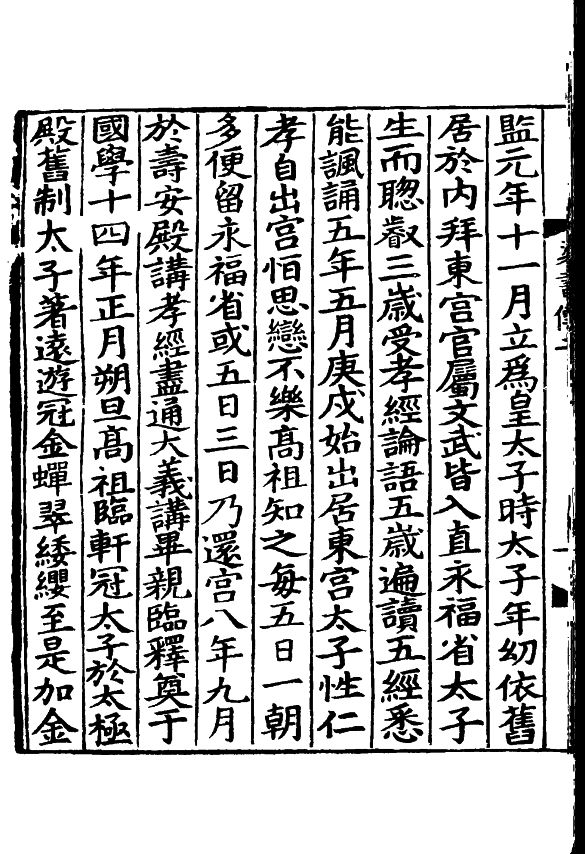 監元年十一月立爲皇太子時太子年幼依舊
居於内拜東宫官屬文武皆入直永福省太子
生而聦叡三歳受孝經論語五歳遍讀五經悉
能諷誦五年五月庚戍始出居東宫太子性仁
孝自出宫恒思戀不樂髙祖知之每五日一朝
多便留永福省或五日三日乃還宫八年九月
於壽安殿講孝經盡通大義講畢親臨釋奠于
國學十四年正月朔旦髙祖臨軒冠太子於太極
殿舊制太子著逺遊冠金蟬翠緌纓至是加金